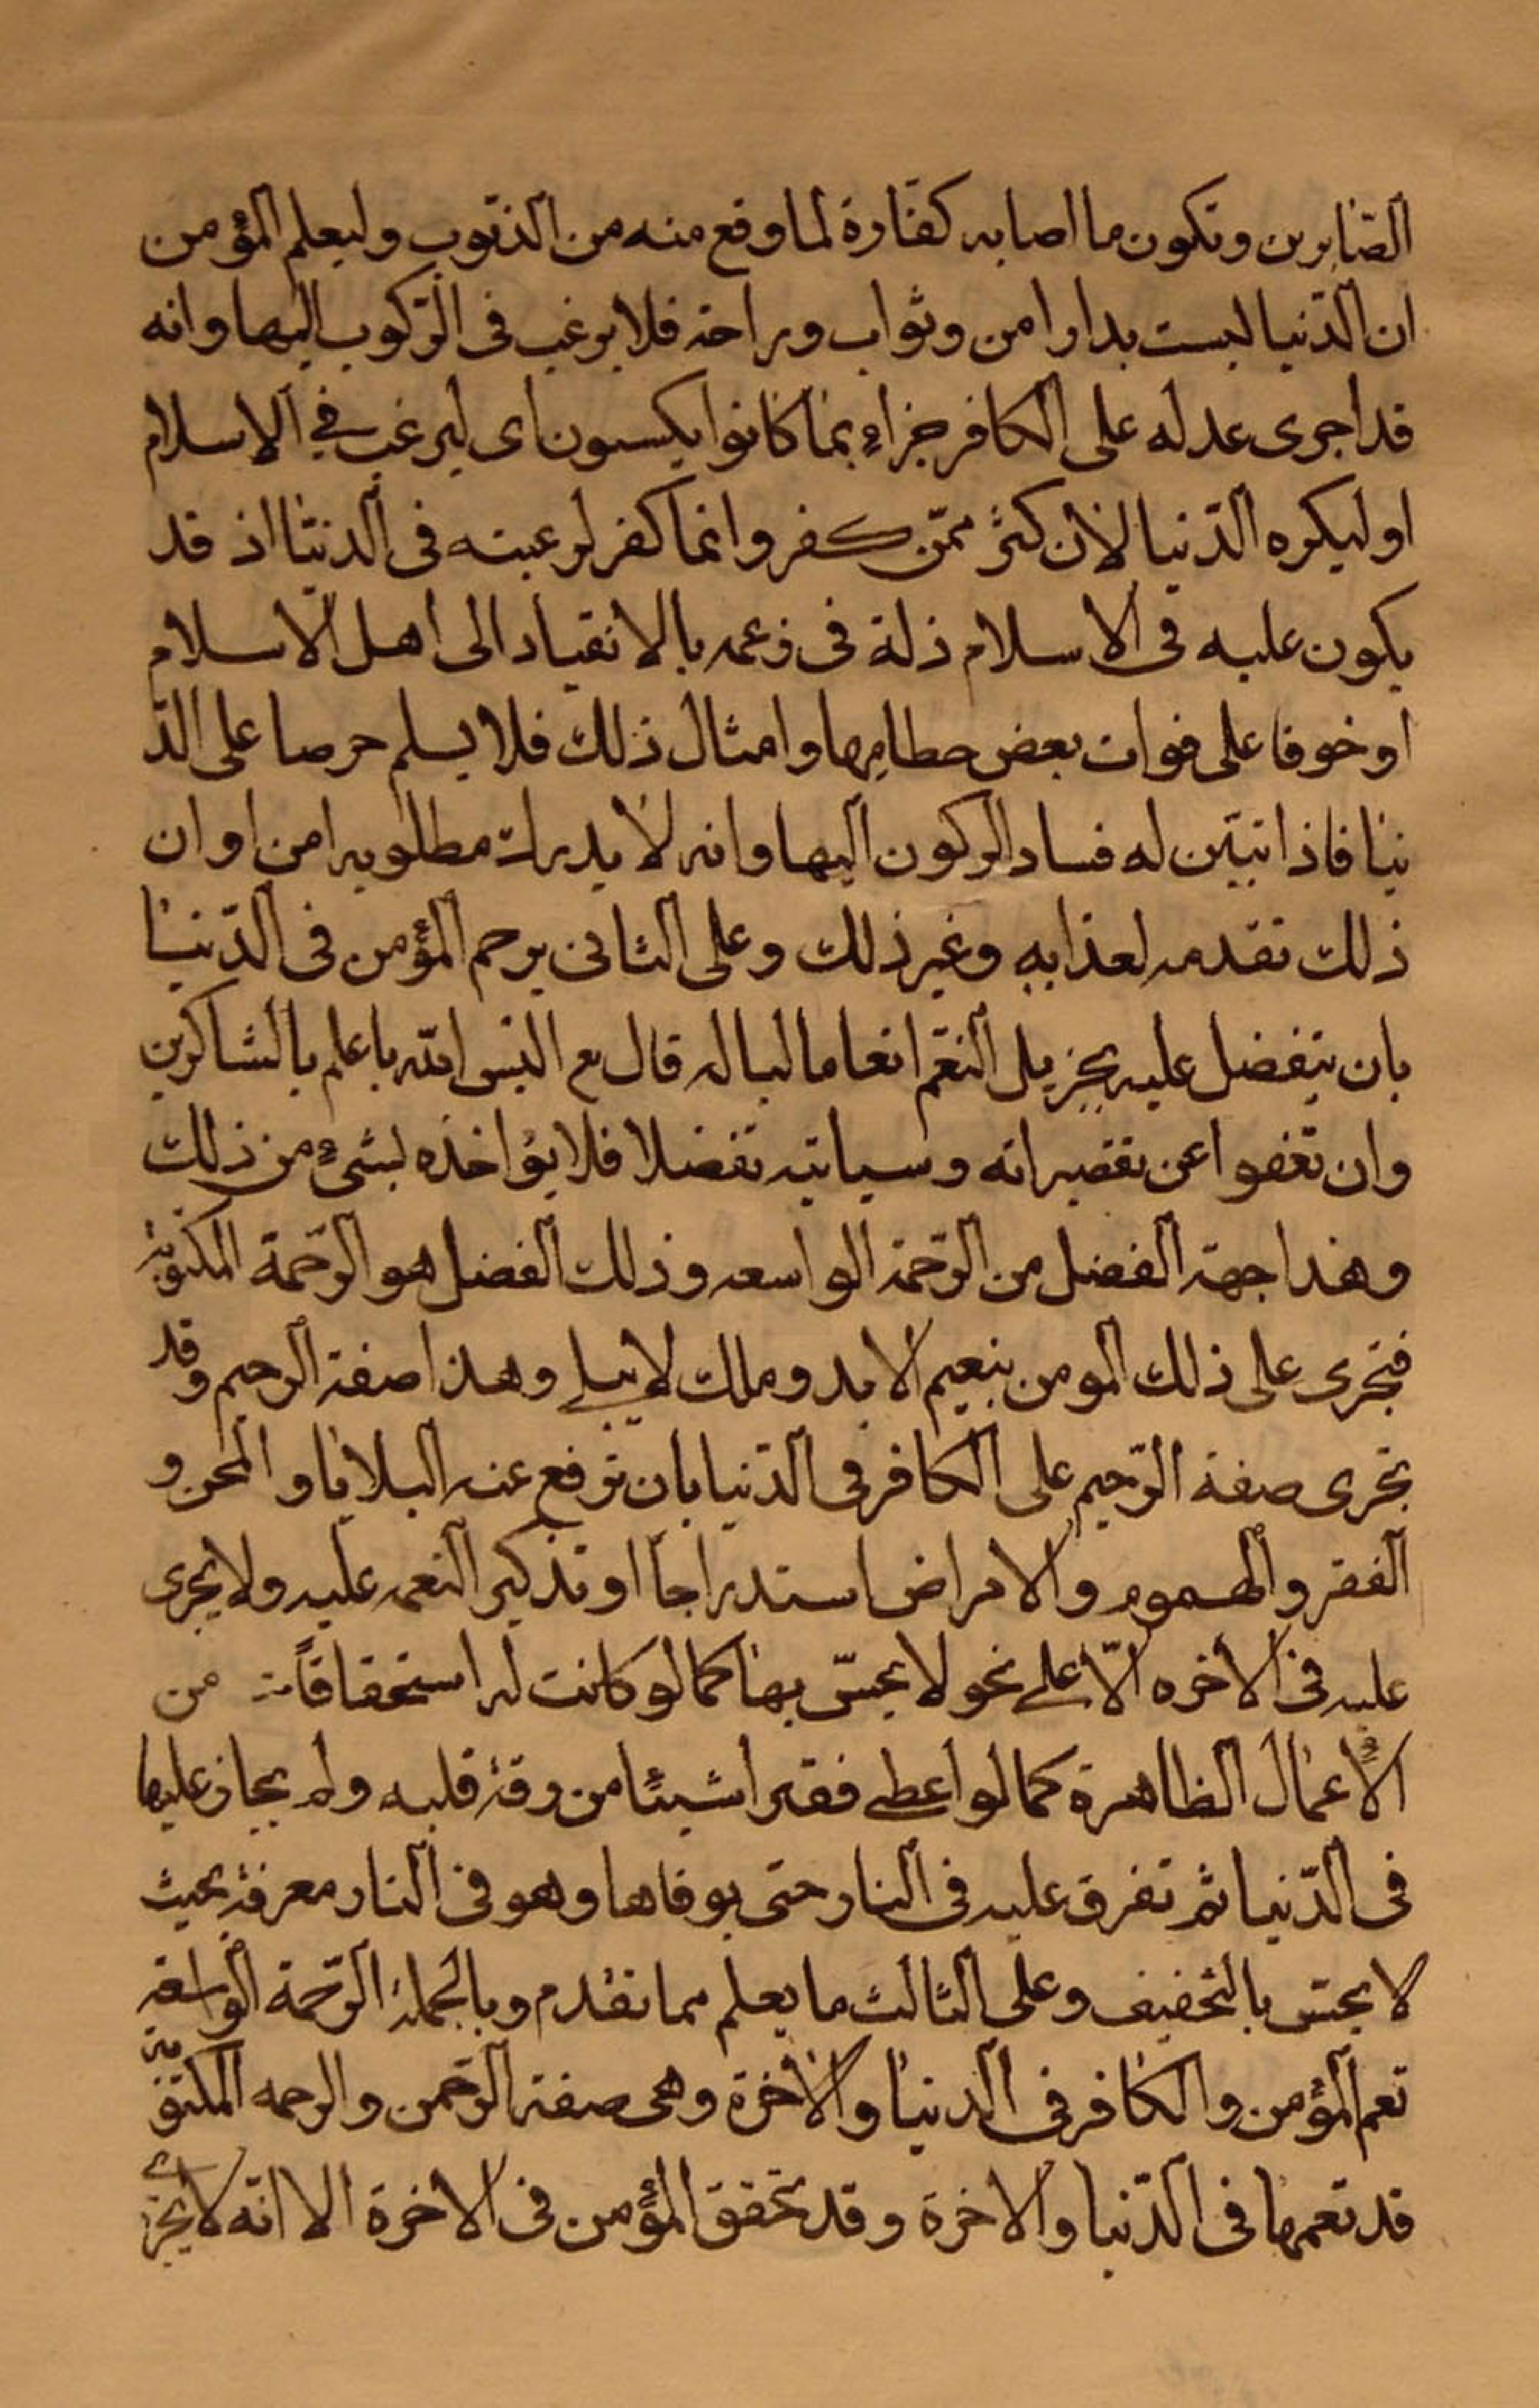 الصّابرين وتكون ما اصابه كفّارة لما وقع منه من الذنوب وليعلم المؤمن
ان الدّنيا ليست بدار امن وثواب وراحة فلا يرغب فى الرّكوب اليها وانه
قد اجرى عدله على الكافر جزاءً بما كانوا يكسبون اى ليرغب فى الاسلام
او ليكره الدّنيا لان كثر ممّن كفر وانما كفر لرغبته فى الدنيا اذ قد
يكون عليه فى الاسلام ذلة فى زعمه بالانقياد الى اهل الاسلام
او خوفا على فوات بعض حطامها وامثال ذلك فلا يسلم حرصا على الد
نيا فاذا تبيّن له فساد الركون اليها وانه لا يدرك مطلوبه امن او ان
ذلك تقدمه لعذابه وغير ذلك وعلى الثانى يرحم المؤمن فى الدّنيا
بان يتفضل عليه بجزيل النعم انعاما لباله قال تع اليس الله باعلم بالشاكرين
وان تعفوا عن تقصيراته وسياته تفضلا فلا يؤاخذه بشىءٍ من ذلك
وهذا جهة الفضل من الرّحمة الواسعه وذلك الفضل هو الرّحمة المكتوبة
فتجرى على ذلك المومن بنعيم الابد وملك لا يبلى وهذا صفة الرحيم وقد
تجرى صفة الرّحيم على الكافر فى الدّنيا بان ترفع عنه البلايا والمحن و
الفقر والهموم والامراض استدراجاً او تذكير النعمه عليه ولا يجرى
عليه فى الاخره الّا على نحو لا يحسّ بها كما لو كانت له استحقاقات من
الاعمال الظاهرة كما لو اعطى فقيرا شيئًا من رقة قلبه ولم يجاز عليها
فى الدّنيا ثم تفرق عليه فى النار حتى يوفاها وهو فى النار معرفة بحيث
لا يحسّ بالتخفيف وعلى الثالث ما يعلم مما تقدم وبالجملة الرّحمة الواسعة
تعم المؤمن والكافر فى الدنيا والاخرة وهى صفة الرّحمن والرحمه المكتوبة
قد تعمها فى الدّنيا والاخرة وقد تحقق المؤمن فى الاخرة الا انّه لا يجرى